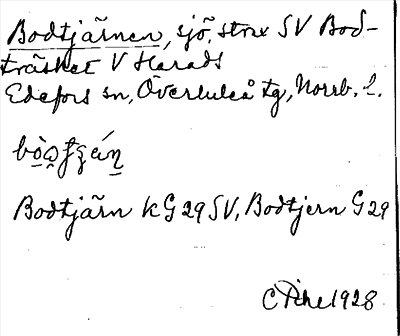 Bodtjärnen, sjö, strax SV Bod-
träsket V Harads
Edefors sn, Överluleå tg, Norrb. l.
Bodtjärn kG29SV, Bodtjern G29
1928